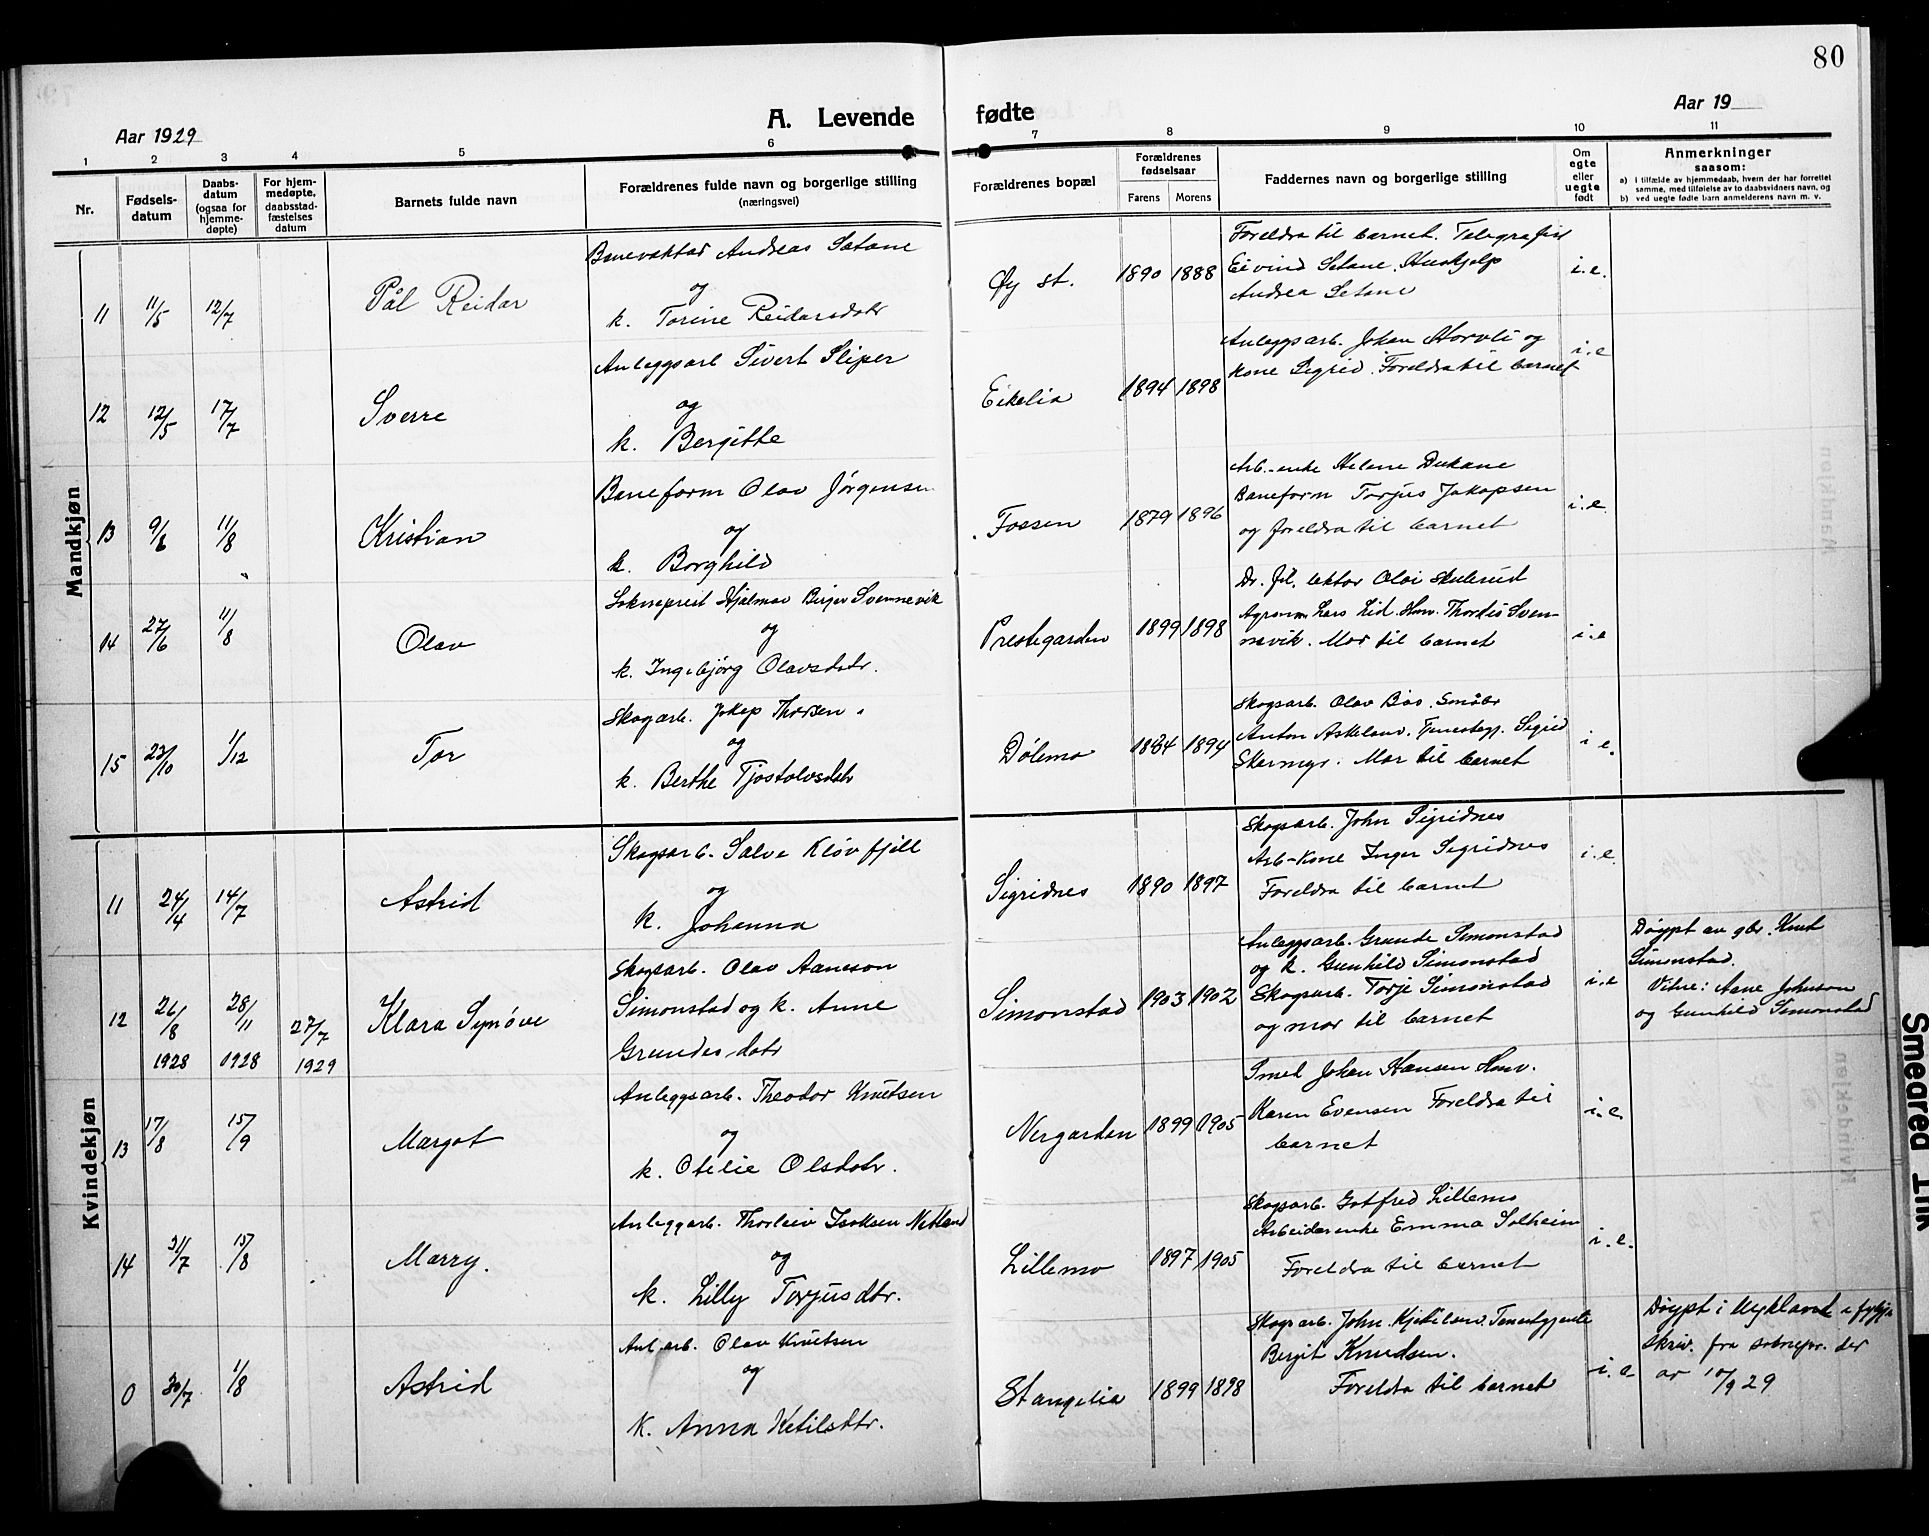 80
Aar 1929
A. Levende fødte
Aar 19
1 2 3 4 5 6 7 8 9 10 11
Nr.
Fødsels-
datum
Daabs-
datum
(ogsaa for
hjemme-
døpte)
For hjem-
medøpte,
daabsstad-
fæstelses
datum
Barnets fulde navn
Forældrenes fulde navn og borgerlige stilling
(næringsvei)
Forældrenes bopæl
Forældrenes
fødselsaar
Farens Morens
Faddernes navn og borgerlige stilling
Om
egte
eller
uegte
født
Anmerkninger
saasom:
a) I tilfælde av hjemmedaab, hvem der har forrettet
samme, med tilføielse av to daabsvidners navn, og
b) ved uegte fødte barn anmelderens navn m. v.
Mandkjøn
11 11/5 12/7 Pål Reidar
Banevaktar Andreas Satane
og
k. Torine Reidarsdotr
Øy st. 1890 1888
Foreldra til barnet. Telegrafist
Eivind Setane. Huskjelp
Andrea Setane
i.e.
12 12/5 17/7 Sverre
Anleggsarb Sivert Sliper
og
k. Bergitte
Eikelia 1894 1898
Anleggsarb. Johan Horvli og
kone Sigrid. Foreldra til barnet
i.e
13 9/6 11/8 Kristian
Baneform Olav Jörgensen
og
k. Borghild
Fossen 1879 1896
Arb.-enke Helene Dukane
Baneform Torjus Jakopsen
og foreldra til barnet
i.e.
14 27/6 11/8 Olav
Sokneprest Hjalmar Birger Svennevik
og
k. Ingebjörg Olavsdotr.
Prestegarden 1899 1898
Dr. fil. lektor Olai Skulerud
Agronom Lars Lid. Husv. Thordis Sven-
nevik. Mor til barnet
i.e
15 23/10 1/12 Tor
Skogarb. Jakop Thorsen.
og
k. Berthe Tjostolvsdotr
Dölemo 1884 1894
Skogsarb. Olav Bås. Småbr
Anton Askeland. Tenestegj. Sigrid
Skarmyr. Mor til barnet
i.e.
Kvindekjøn
11 24/4 14/7 Astrid
Skogsarb. Salve Klövfjell
og
k. Johanna
Sigridnes 1890 1897
Skogsarb. John Sigridnes
Arb-kone Inger Sigridnes
Foreldra til barnet
i.e.
12 26/8 1928 28/11 1928 27/7 1929 Klara Synöve
Skogsarb. Olav Aaneson
Simonstad og k. Anne
Grundesdotr
Simonstad 1903 1902
Anleggsarb. Grunde Simonstad
og k. Gunhild Simonstad
Skogsarb. Torje Simonstad
og mor til barnet
i.e
Döypt av gbr. Knut
Simonstad.
Vitne: Aane Johnson
og Gunhild Simonstad
13 17/8 15/9 Margot
Anleggsarb. Theodor Knutsen
og
k. Otelie Olsdotr.
Nergarden 1899 1905
Smed Johan Hansen Husv.
Karen Evensen Foreldra til
barnet
i.e.
14 31/7 15/8 Marry.
Anleggarb. Thorleiv Isaksen Netland
og
k. Lilly Torjusdtr.
Lillemo 1897 1905
Skogsarb. Gotfred Lillemo
Arbeidarenke Emma Solheim
Foreldra til barnet
i.e.
0 30/7 1/8 Astrid
Anl.arb. Olav Knutsen
og
K. Anna Ketilsdtr.
Stangelia 1899 1898
Skogsarb. John Kjetiland. Tenestgjente
Birgit Knudsen.
Foreldra til barnet
i.e.
Döypt i Mykland i fylgje
skriv. fra soknepr. der
av 10/9 29
Smeared Ink